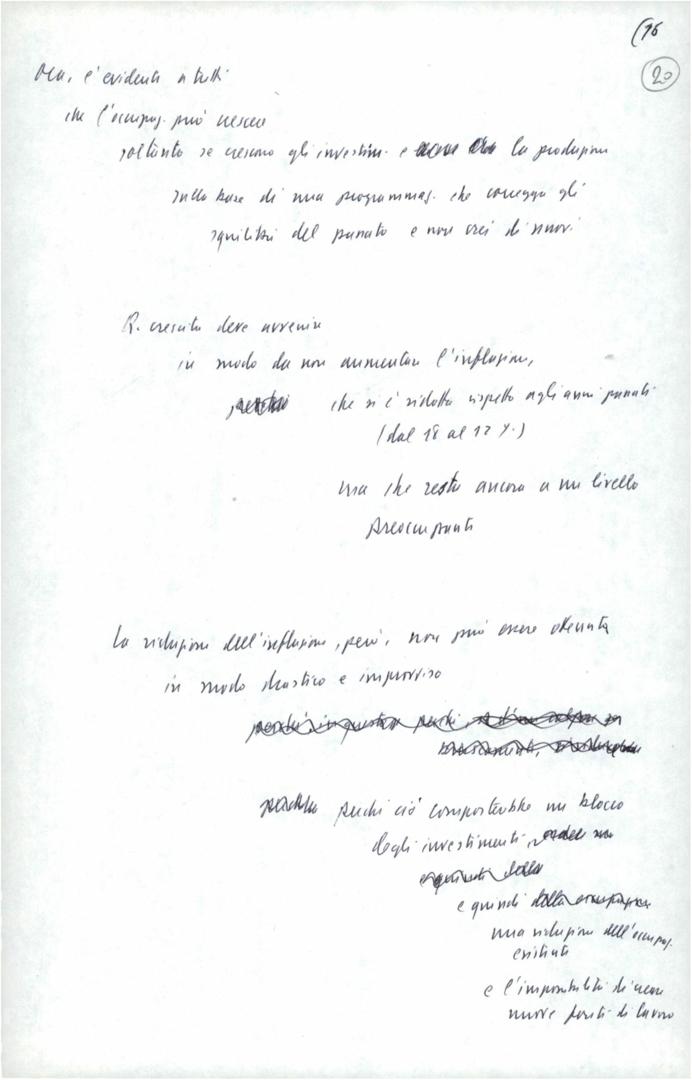 (16
20
Ora, è evidente a tutti
che l'occupaz. può crescere
soltanto se crescono gli investim. e la produzione
sulla base di una programmaz. che corregga gli
squilibri del passato e non crei di nuovi
Q. crescita deve avvenire
in modo da non aumentare l'inflazione,
che si è ridotta rispetto agli anni passati
(dal 18 al 12 %)
ma che resta ancora a un livello
preoccupante
La riduzione dell'inflazione, però, non può essere ottenuta
in modo drastico e improvviso
perché ciò comporterebbe un blocco
degli investimenti
e quindi
una riduzione dell'occupaz.
esistente
e l'impossibilità di creare
nuovi posti di lavoro